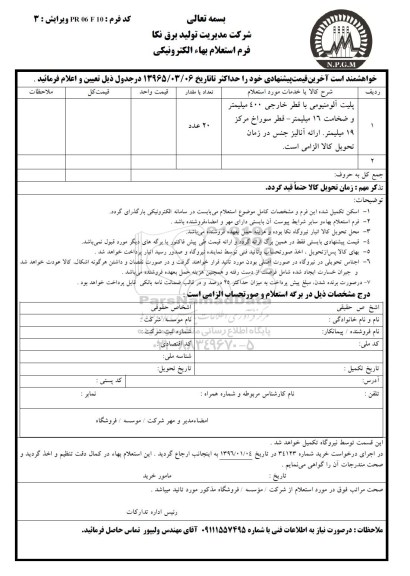 بسمه تعالی
کد فرم : PR 06 F 10 ویرایش : ۳
شرکت مدیریت تولید برق نکا
فرم استعلام بهاء الکترونیکی
N.P.G.M
خواهشمند است آخرین قیمت پیشنهادی خود را حداکثر تا تاریخ ۱۳۹۶۵/۰۳/۰۶ در جدول ذیل تعیین و اعلام فرمائید .
ردیف شرح کالا یا خدمات مورد استعلام تعداد یا مقدار قیمت واحد قیمت کل ملاحظات
۱ پلیت آلومنیومی با قطر خارجی ۴۰۰ میلیمتر
و ضخامت ۱۶ میلیمتر- قطر سوراخ مرکز
۱۹ میلیمتر. ارائه آنالیز جنس در زمان
تحویل کالا الزامی است.
۲۰ عدد
۲
جمع کل به حروف:
تذکر مهم : زمان تحویل کالا حتماً قید گردد.
توضیحات:
۱- اسکن تکمیل شده این فرم و مشخصات کامل موضوع استعلام می‌بایست در سامانه الکترونیکی بارگذاری گردد.
۲- فرم استعلام بهاء و سایر شرایط پیوست آن بایستی دارای مهر و امضاء فروشنده باشد .
۳- محل تحویل کالا انبار نیروگاه نکا بوده و هزینه حمل بعهده فروشنده می‌باشد.
۴- قیمت پیشنهادی بایستی فقط در همین برگ ارائه گردد و ارائه قیمت طی پیش فاکتور یا برگه های دیگر مورد قبول نمی‌باشد.
۵- بهای کالا پس از تحویل ، اخذ صورتحساب و تائید فنی توسط نماینده نیروگاه و صدور رسید انبار پرداخت خواهد شد .
۶- اجناس تحویلی در نیروگاه در صورت اصلی بودن مورد تائید قرار خواهد گرفت و در صورت نقصان و داشتن هرگونه اشکال، کالا عودت خواهد شد
و جبران خسارت ایجاد شده شامل فرصت از دست رفته و همچنین هزینه حمل بعهده فروشنده می‌باشد .
۷- درصورت برنده شدن، مبلغ پیش پرداخت به میزان حداکثر ۲۵ درصد و در قالب ضمانت نامه بانکی قابل پرداخت خواهد بود .
درج مشخصات ذیل در برگه استعلام و صورتحساب الزامی است :
اشخاص حقیقی اشخاص حقوقی
نام و نام خانوادگی : نام موسسه / شرکت :
نام فروشنده / پیمانکار: شماره ثبت شرکت :
کد ملی: کد اقتصادی:
شناسه ملی:
تاریخ تکمیل : تاریخ تحویل:
آدرس: کد پستی :
تلفن : نام کارشناس مربوطه و شماره همراه : نمابر :
امضاء مدیر و مهر شرکت / موسسه / فروشگاه
این قسمت توسط نیروگاه تکمیل خواهد شد .
در اجرای درخواست خرید شماره ۳۴۱۲۳ در تاریخ ۱۳۹۶/۰۱/۰۴ به اینجانب ارجاع گردید . این استعلام بهاء در کمال دقت تنظیم و اخذ گردید و
صحت مندرجات آن را گواهی می‌نمایم .
تاریخ : مامور خرید
صحت مراتب فوق در مورد استعلام از شرکت / موسسه / فروشگاه مذکور مورد تائید میباشد .
رئیس اداره تدارکات
ملاحظات : درصورت نیاز به اطلاعات فنی با شماره ۰۹۱۱۱۵۵۷۴۹۵ آقای مهندس ولیپور تماس حاصل فرمائید.